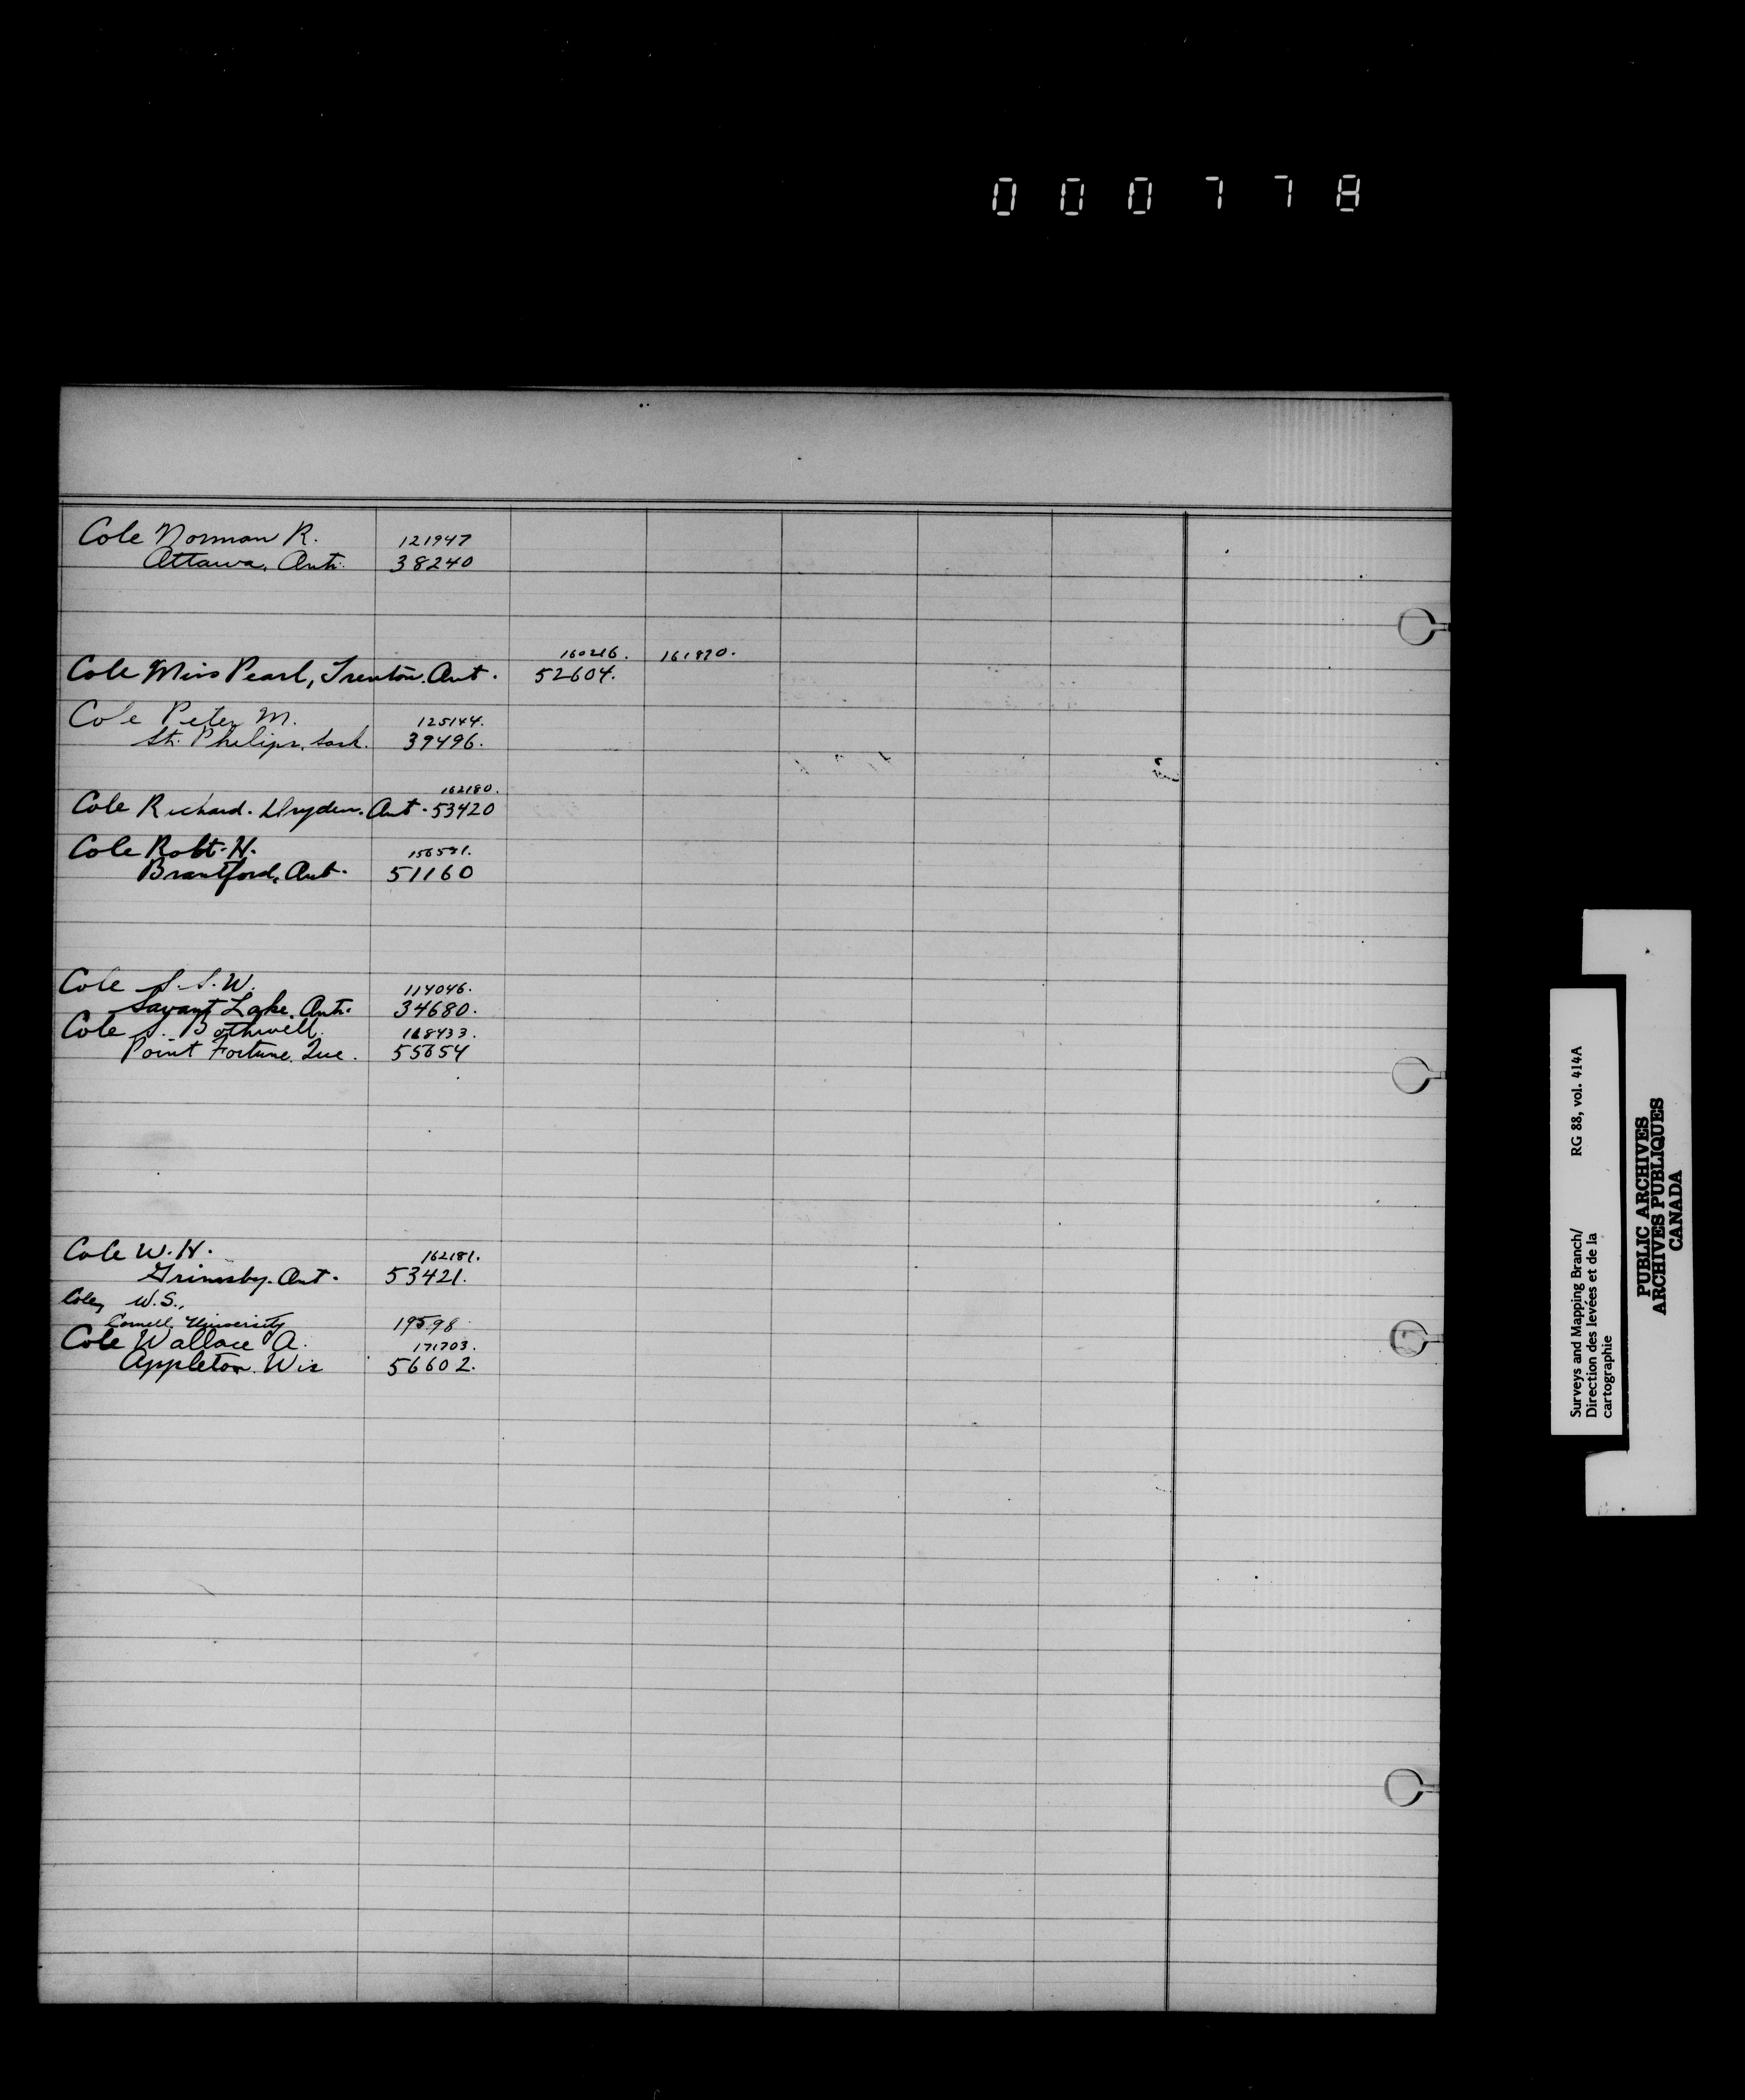 000778
Cole Norman R. 121947
Ottawa, Ont. 38240
160216. 161820.
Cole Miss Pearl, Trenton. Ont. 52604.
Cole Peter M. 125144.
St. Philips, Sask. 39496.
162180.
Cole Richard. Dryden. Ont. 53420
Cole Robt. H. 156591.
Brantford, Ont. 51160
Cole S. S. W. 114046.
Savant Lake. Ont. 34680.
Cole S. Bothwell. 168433.
Point Fortune. Que. 55654
Cole W. H. 162181.
Grimsby. Ont. 53421.
Cole, W.S.,
Cornell University 19598
Cole Wallace A. 171703.
Appleton. Wis 56602.
Surveys and Mapping Branch/ RG 88, vol. 414A
Direction des levées et de la
cartographie
PUBLIC ARCHIVES
ARCHIVES PUBLIQUES
CANADA